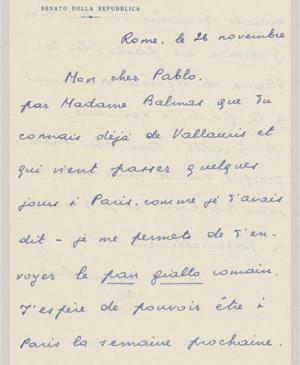 SENATO DELLA REPUBBLICA
Rome, le 26 novembre
Mon cher Pablo,
par Madame Balmas que tu
connais déjà de Vallauris et
qui vient passer quelques
jours à Paris, comme je t'avais
dit - je me permets de t'en-
voyer le pan giallo romain.
J'espère de pouvoir être à
Paris la semaine prochaine.